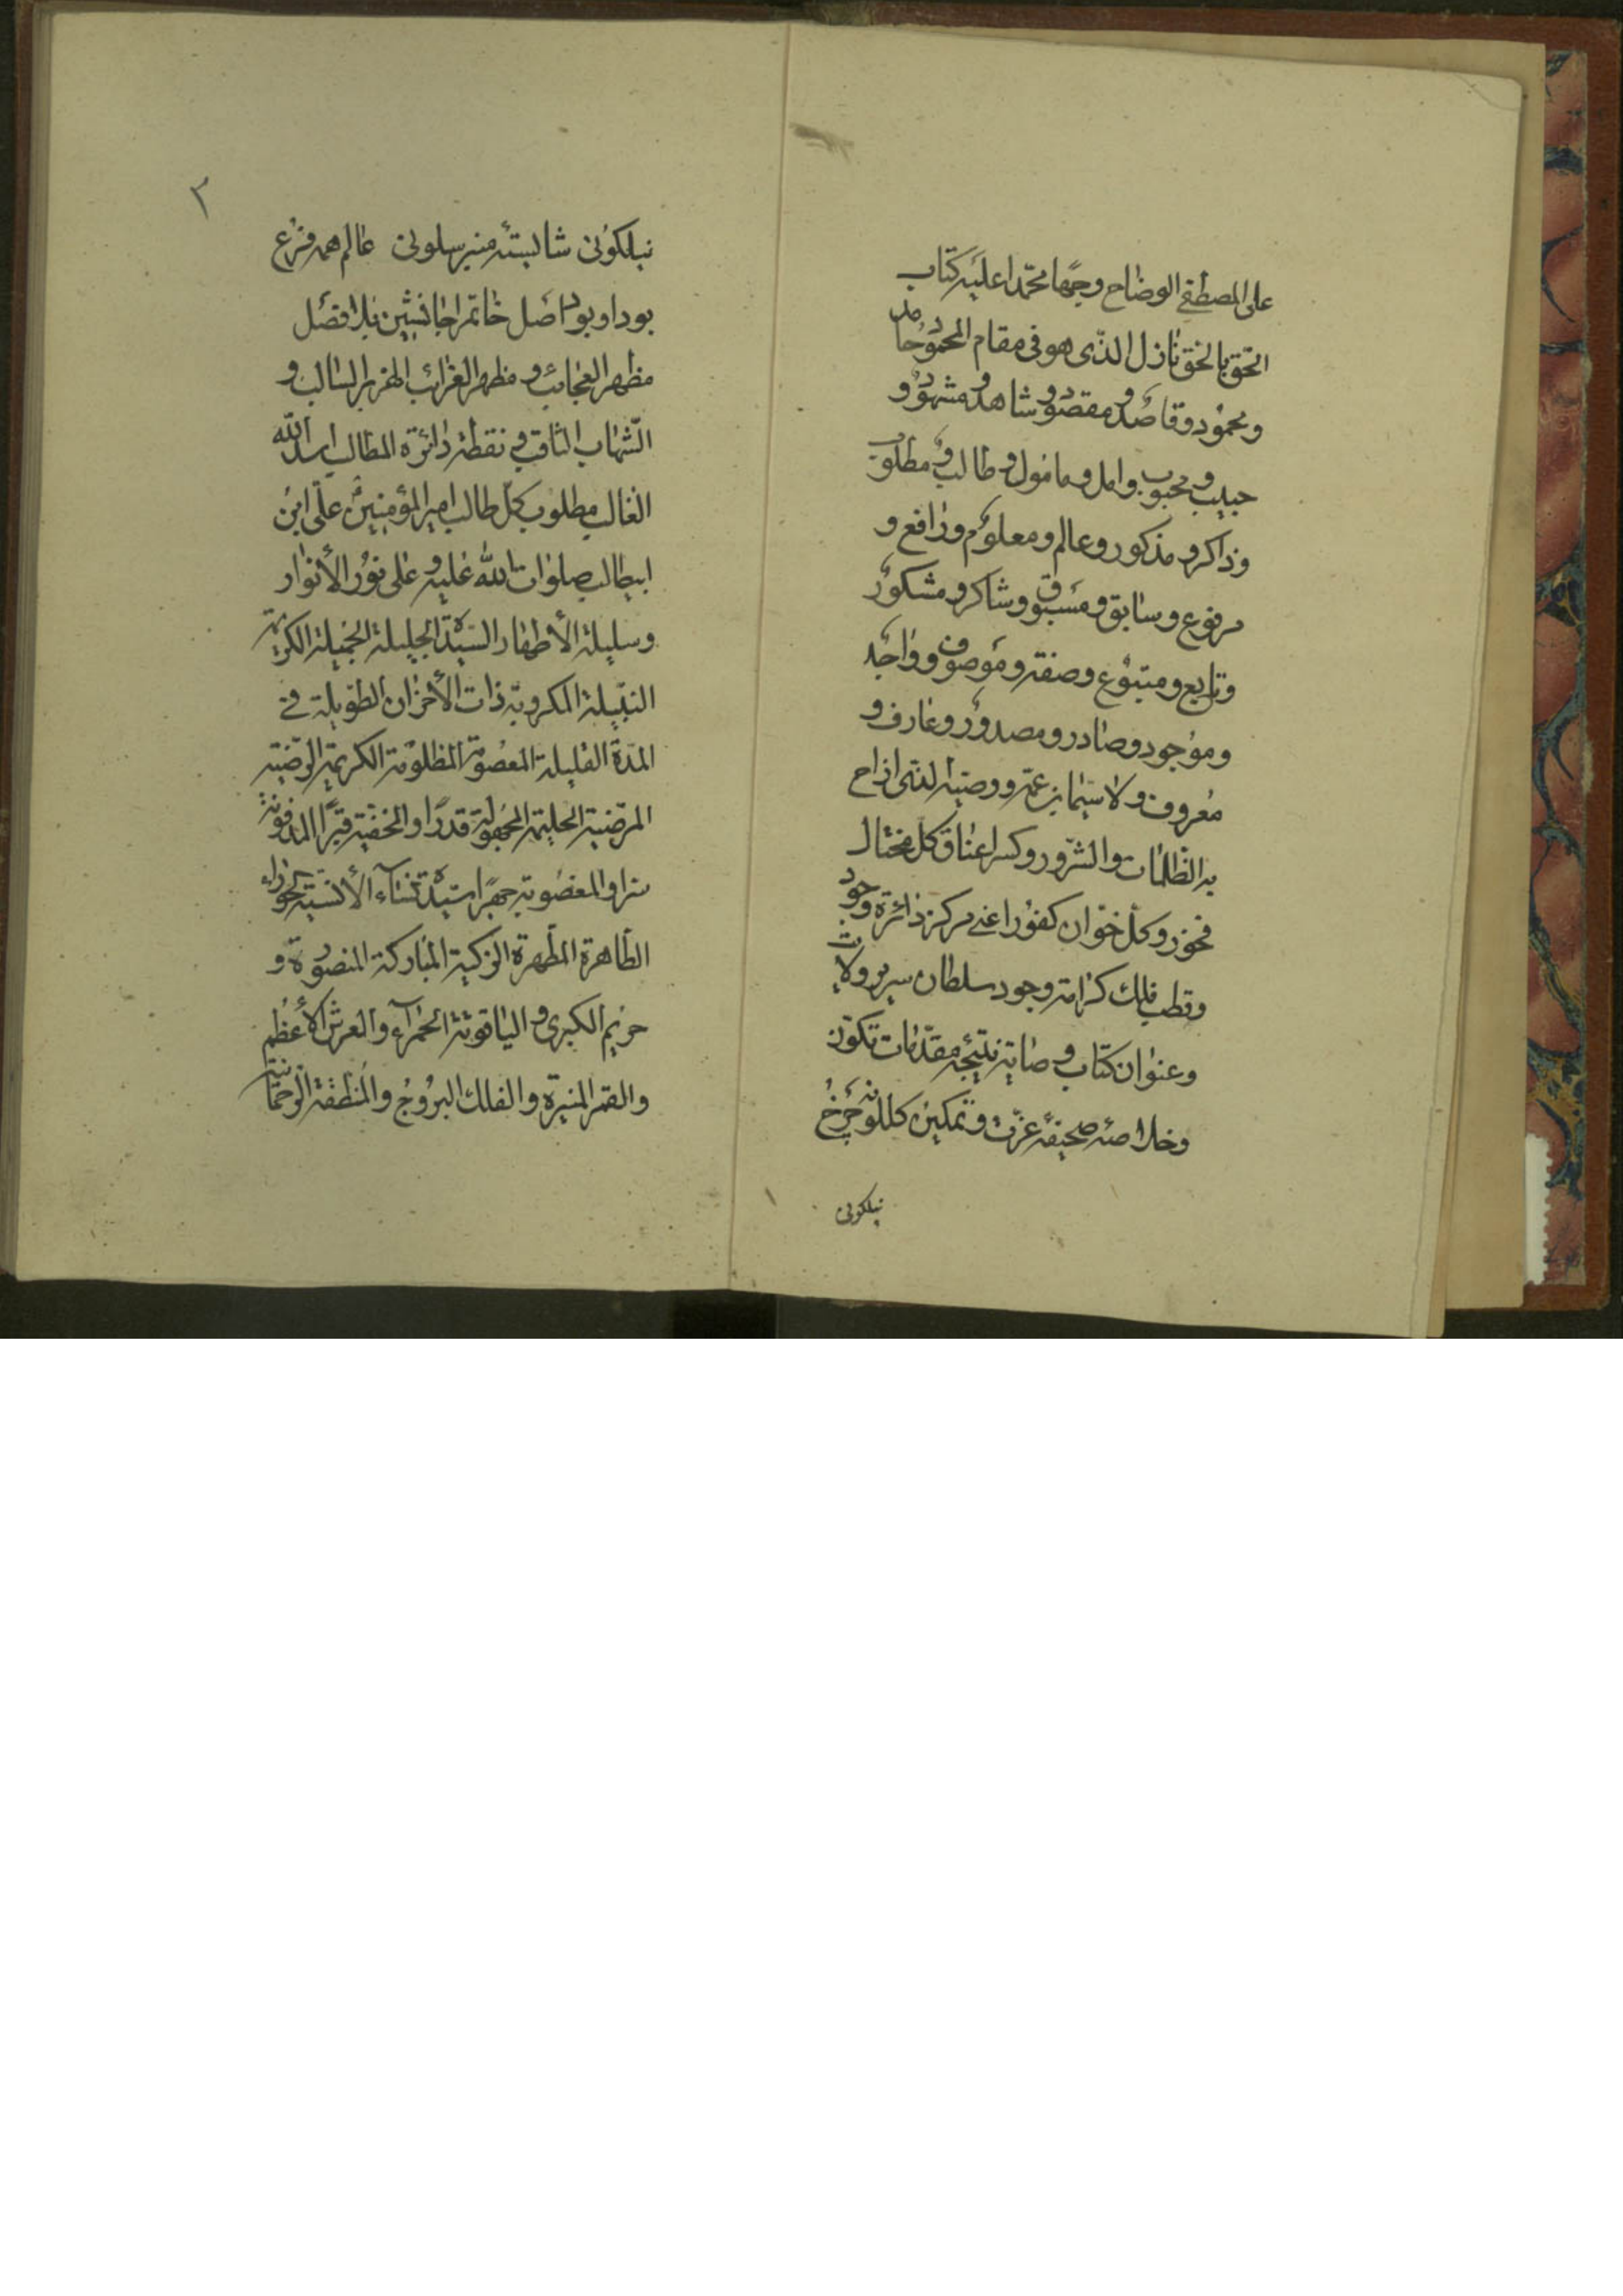 على المصطفى الوضاح وجها محمدا عليه كتاب
الحق بالحق نازل الذى هو فى مقام المحمود حامد
و محمود و قاصد و مقصود و شاهد و مشهود و
حبيب و محبوب و امل و مامول و طالب و مطلوب
و ذاكر و مذكور و عالم و معلوم و رافع و
مرفوع و سابق و مسبوق و شاكر و مشكور
و تابع و متبوع و صفة و موصوف و واجد
و موجود و صادر و مصدور و عارف و
معروف و لا سيما ابن عمه و وصيه الذى ازاح
به الظلمات و الشرور و كسر اعناق كل مختال
فخور و كل خوان كفور اعنى مركز دائرة وجود
و قطب فلك كرامة وجود سلطان سرير ولايت
و عنوان كتاب وصايت نتيجه مقدمات تكون
و خلاصه صحيفه عزت و تمكين كللونه چرخ
نيلكونى
٢
نيلكونى شايسته منبر سلونى عالم همه فرع
بود او بود اصل خاتم را جانشين بلا فصل
مظهر العجائب و مظهر الغرائب الهزبر السالب و
الشهاب الثاقب و نقطة دائرة المطالب اسد الله
الغالب مطلوب كل طالب امير المؤمنين على ابن
ابيطالب صلوات الله عليه و على نور الأنوار
و سليلة الأطهار السيدة الجليلة الجميلة الكريمة
النبيلة المكروبة ذات الأحزان الطويلة فى
المدة القليلة المعصومة المظلومة الكريمة الرضية
المرضية الحليمة المجهولة قدرا و المخفية قبرا المدفونة
سرا و المغصوبة جهرا سيدة نساء الأنسية الحوراء
الطاهرة المطهرة الزكية المباركة المنصورة و
مريم الكبرى و الياقوتة الحمراء و العرش الأعظم
و القمر المنيرة و الفلك البروج و المنطقة الرحمانية